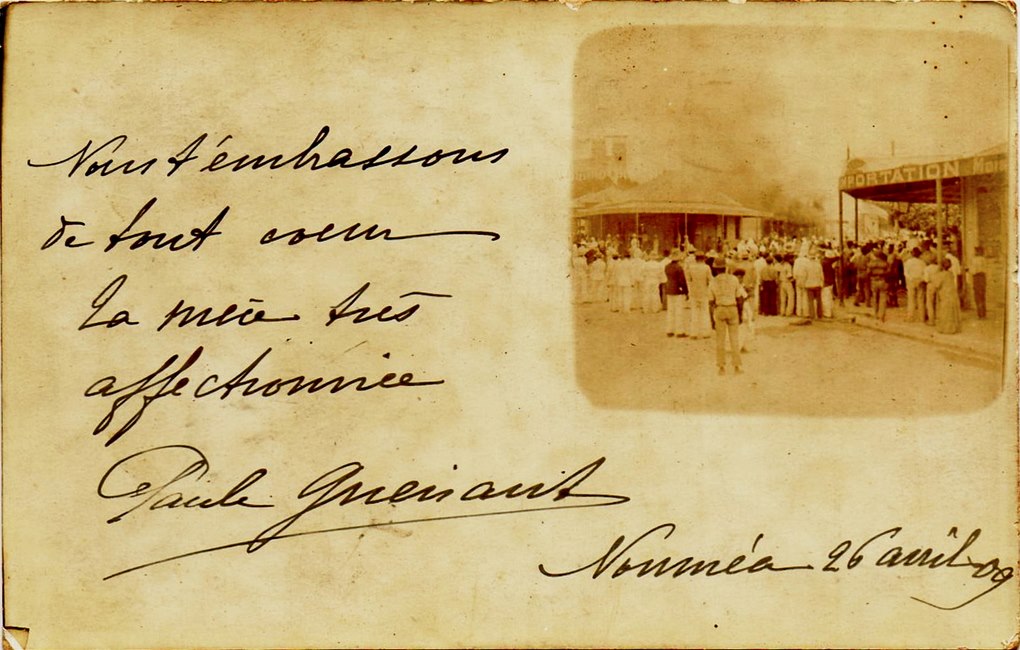 Nous t'embrassons
de tout coeur
La mère très
affectionnée
Paule
Nouméa 26 avril 09
PORTATION